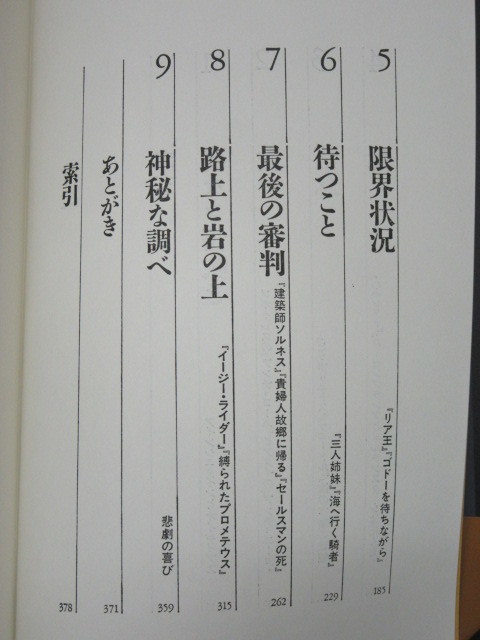 5 限界状況 『リア王』『ゴドーを待ちながら』 185
6 待つこと 『三人姉妹』『海へ行く騎者』 229
7 最後の審判 『建築師ソルネス』『貴婦人故郷に帰る』『セールスマンの死』 262
8 路上と岩の上 『イージー・ライダー』『縛られたプロメテウス』 315
9 神秘な調べ 悲劇の喜び 359
あとがき 371
索引 378